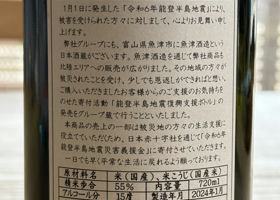 1月1日に発生した「令和6年能登半島地震」により、
被害を受けられた方々に対しまして、心よりお見舞い申
し上げます。
弊社グループにも、富山県魚津市に魚津酒造という
日本酒蔵がございます。魚津酒造を通じて弊社商品も
北陸エリアへの販売が広がりました。その地域の方々が
被災されたことを受け、少しでも恩返しができればと想い
ご購入いただきましたお客様からのご支援のお気持ちを
のせた寄付活動「能登半島地震復興支援ボトル」の
発売をグループ蔵で行うことといたしました。
本商品の売上の一部は被災地の方々の生活支援に
役立てていただくため、日本赤十字社を通じて「令和6年
能登半島地震災害義援金」に寄付させていただきます。
一日でも早く平常な生活に戻れるよう願っております。
原材料名 米(国産)、米こうじ(国産米)
精米歩合 55% 内容量 720ml
アルコール分 15度 製造年月 2024年1月